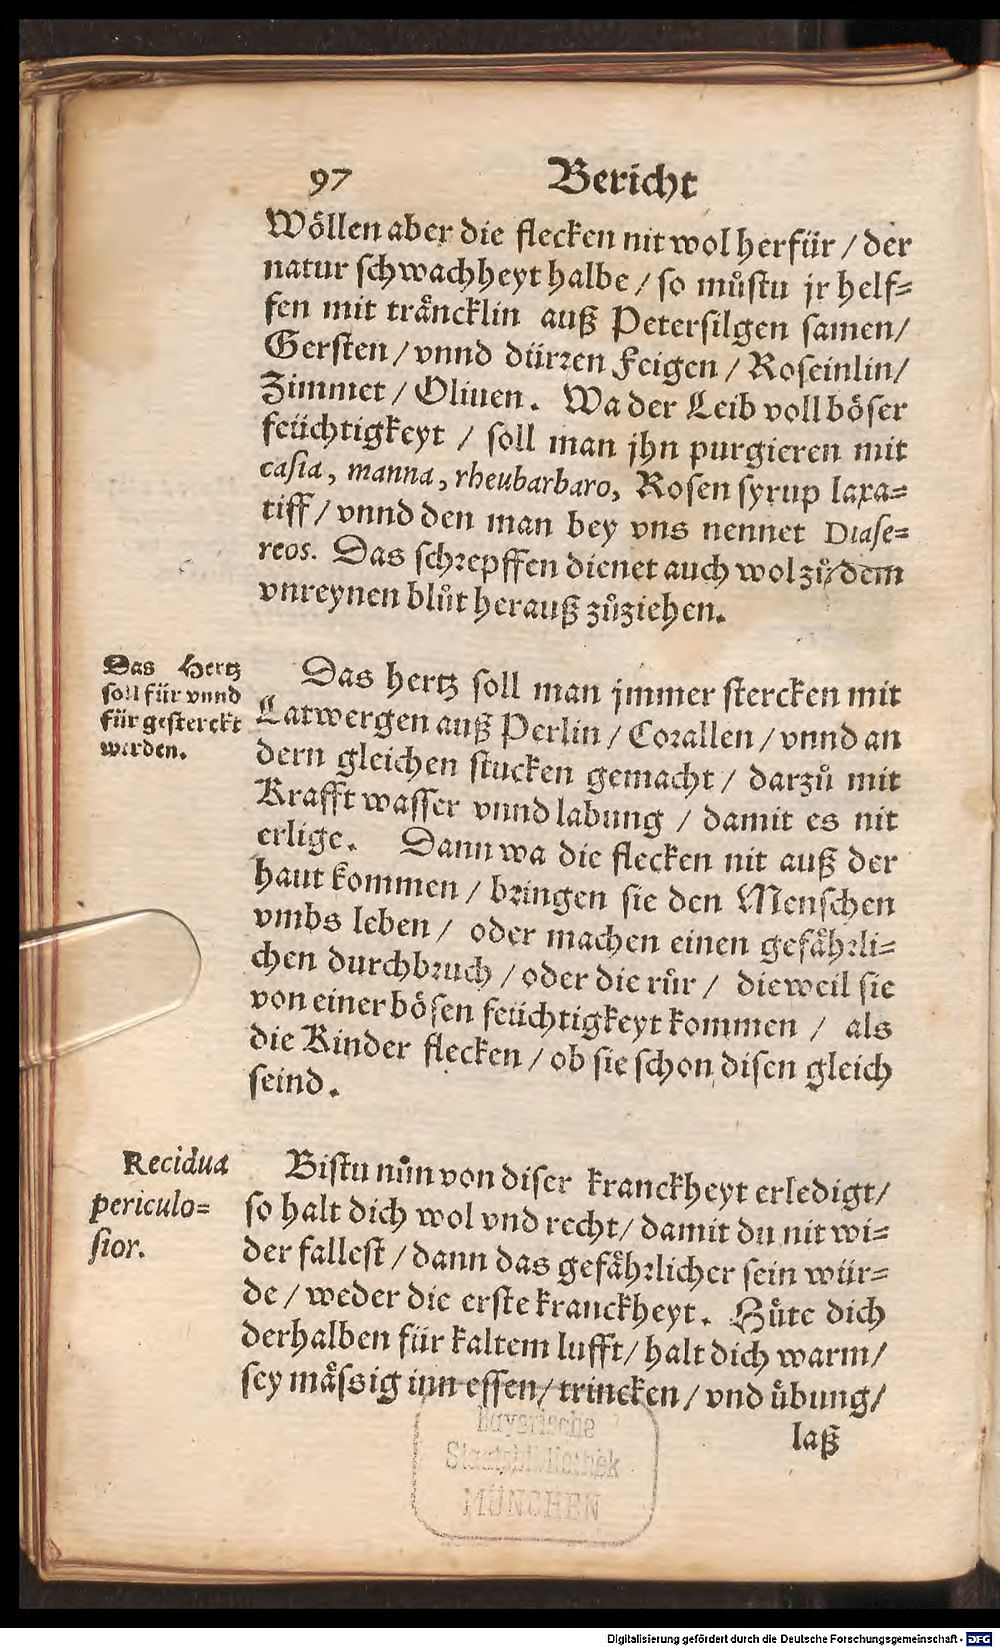 97 Bericht
Wöllen aber die flecken nit wol herfür / der
natur schwachheyt halbe / so můstu jr helf=
fen mit träncklin auß Petersilgen samen/
Gersten / vnnd dürren Feigen / Roseinlin/
Zimmet / Oliuen. Wa der Leib voll böser
feüchtigkeyt / soll man jhn purgieren mit
casia, manna, rheubarbaro, Rosen syrup laxa=
tiff / vnnd den man bey vns nennet Diase=
reos. Das schrepffen dienet auch wol zů/dem
vnreynen blůt herauß zůziehen.
Das Hertz
soll für vnnd
für gesterckt
werden.
Das hertz soll man jmmer stercken mit
Latwergen auß Perlin / Corallen / vnnd an
dern gleichen stucken gemacht / darzů mit
Krafft wasser vnnd labung / damit es nit
erlige. Dann wa die flecken nit auß der
haut kommen / bringen sie den Menschen
vmbs leben / oder machen einen gefährli=
chen durchbruch / oder die růr / dieweil sie
von einer bösen feüchtigkeyt kommen / als
die Kinder flecken / ob sie schon disen gleich
seind.
Recidua
periculo=
sior.
Bistu nůn von diser kranckheyt erledigt/
so halt dich wol vnd recht / damit du nit wi=
der fallest / dann das gefährlicher sein wür=
de / weder die erste kranckheyt. Hůte dich
derhalben für kaltem lufft / halt dich warm/
sey mässig inn essen / trincken / vnd übung/
laß
Bayerische
Staatsbibliothek
MÜNCHEN
Digitalisierung gefördert durch die Deutsche Forschungsgemeinschaft - DFG